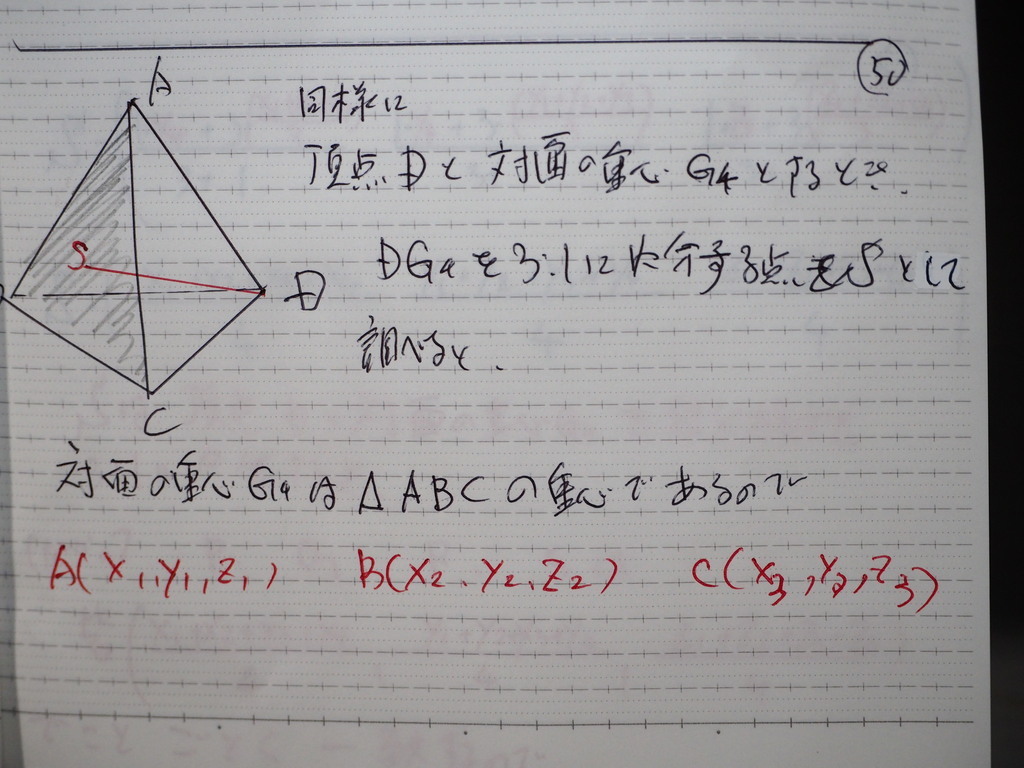 50
A
同様に
頂点 D と 対面の重心 G4 とすると
DG4を3:1に内分する点をSとして
S
D
調べると、
C
対面の重心 G4 は △ABC の重心であるので
A(x1,y1,z1) B(x2,y2,z2) C(x3,y3,z3)